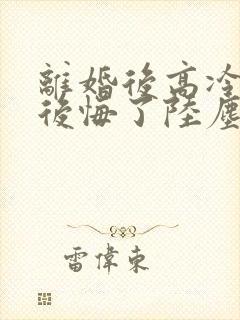 離婚後高冷
後悔了陸塵
雷偉東